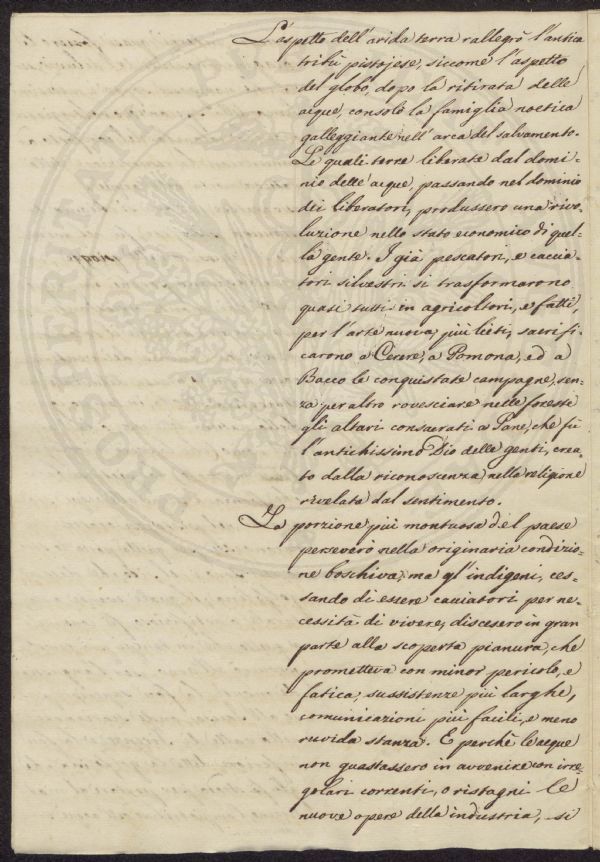 L'aspetto dell'arida terra rallegrò l'antica
tribù pistojese, siccome l'aspetto
del globo, dopo la ritirata delle
acque, consolò la famiglia noetica
galleggiante nell'arca del salvamento.
Le quali terre liberate dal domi-
nio delle acque, passando nel dominio
dei liberatori, produssero una rivo-
luzione nello stato economico di quel-
la gente. I già pescatori, e caccia-
tori silvestri si trasformarono
quasi tutti in agricoltori, e fatti,
per l'arte nuova, più lieti, sacrifi-
carono a Cerere, a Pomona, ed a
Bacco le conquistate campagne, sen-
za per altro rovesciare nelle foreste
gli altari consacrati a Pane, che fù
l'antichissimo Dio delle genti, crea-
to dalla riconoscenza nella religione
rivelata dal sentimento.
La porzione più montuosa del paese
perseverò nella originaria condizio-
ne boschiva; ma gl'indigeni, ces-
sando di essere cacciatori per ne-
cessità di vivere, discesero in gran
parte alla scoperta pianura, che
prometteva con minor pericolo, e
fatica, sussistenze più larghe,
comunicazioni più facili, e meno
ruvida stanza. E perchè le acque
non guastassero in avvenire con irre-
golari correnti, o ristagni le
nuove opere della industria, si